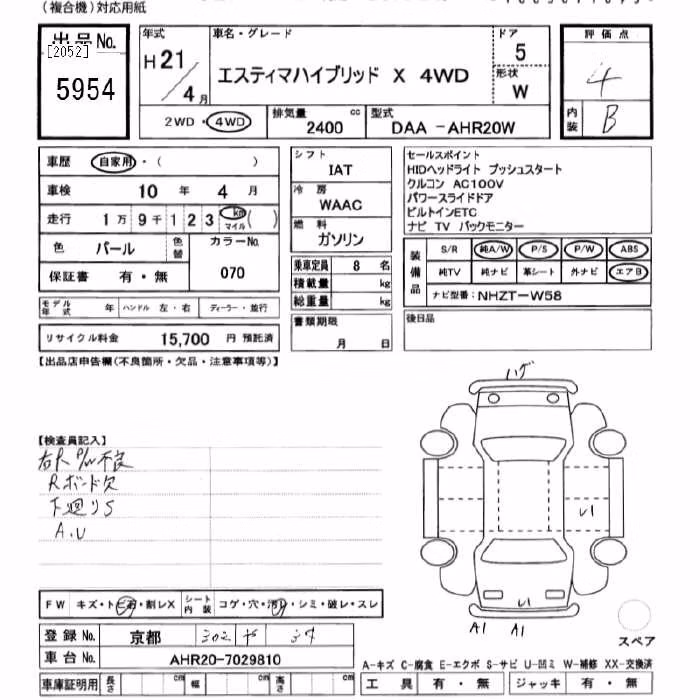 (複合機)対応用紙
出品No.
[2052]
5954
年式
H21/4月
車名・グレード
エスティマハイブリッド X 4WD
ドア
5
形状
W
評価点
4
内装
B
2WD・4WD
排気量 cc
2400
型式
DAA -AHR20W
車歴 自家用・( )
車検 10年 4月
走行 1万9千123 km マイル( )
色 パール 色替
カラーNo.
070
保証書 有・無
モデル年式 年 ハンドル 左・右 ディーラー・並行
リサイクル料金 15,700 円 預託済
シフト
IAT
冷房
WAAC
燃料
ガソリン
乗車定員 8 名
積載量 kg
総重量 kg
書類期限
月 日
セールスポイント
HIDヘッドライト プッシュスタート
クルコン AC100V
パワースライドドア
ビルトインETC
ナビ TV バックモニター
装備品
S/R 純A/W P/S P/W ABS
純TV 純ナビ 革シート 外ナビ エアB
ナビ型番: NHZT-W58
後日品
【出品店申告欄(不良箇所・欠品・注意事項等)】
【検査員記入】
右R P/W不良
Rボード欠
下廻りS
A.U
ハゲ
U1
U1
A1 A1
スペア
FW キズ・トビ石・割レX
シート内装 コゲ・穴・汚レ・シミ・破レ・スレ
登録No. 京都 302 や 37
車台No. AHR20-7029810
車庫証明用 長さ cm 幅 cm 高さ cm
A-キズ C-腐食 E-エクボ S-サビ U-凹ミ W-補修 XX-交換済
工具 有・無 ジャッキ 有・無